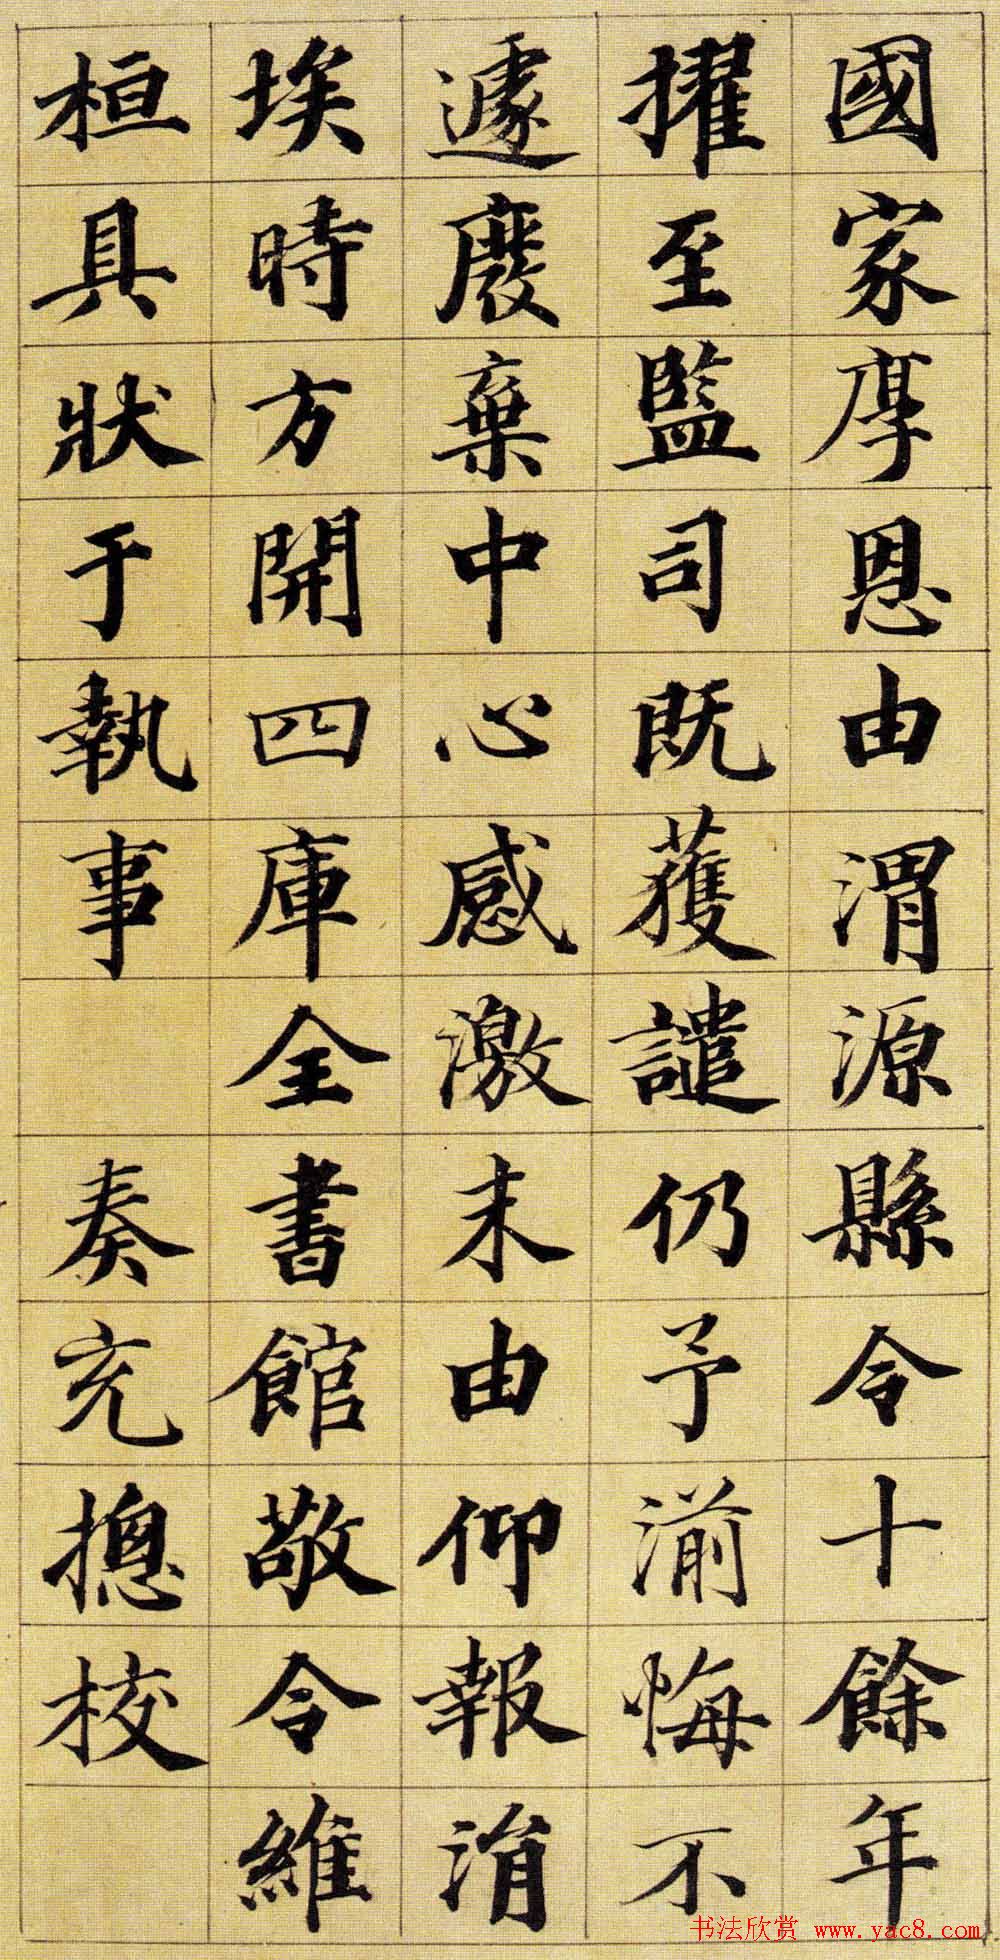 國家厚恩由渭源縣令十餘年
擢至監司既獲譴仍予湔悔不
遽廢棄中心感激未由仰報涓
埃時方開四庫全書館敬令維
桓具狀于執事 奏充摠校
书法欣赏 www.yac8.com